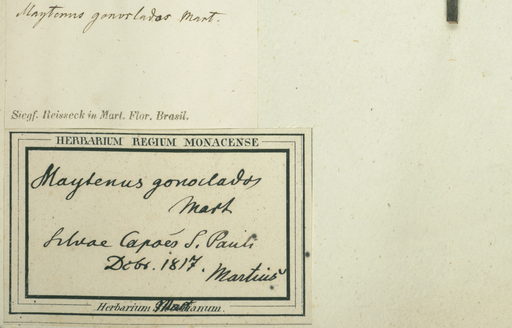 Maytenus gonoclados Mart.
Siegf. Reisseck in Mart. Flor. Brasil.
HERBARIUM REGIUM MONACENSE
Maytenus gonoclados
Mart
Silvae Capoës S. Pauli
Dcbr. 1817. Martius
Herbarium Martianum.